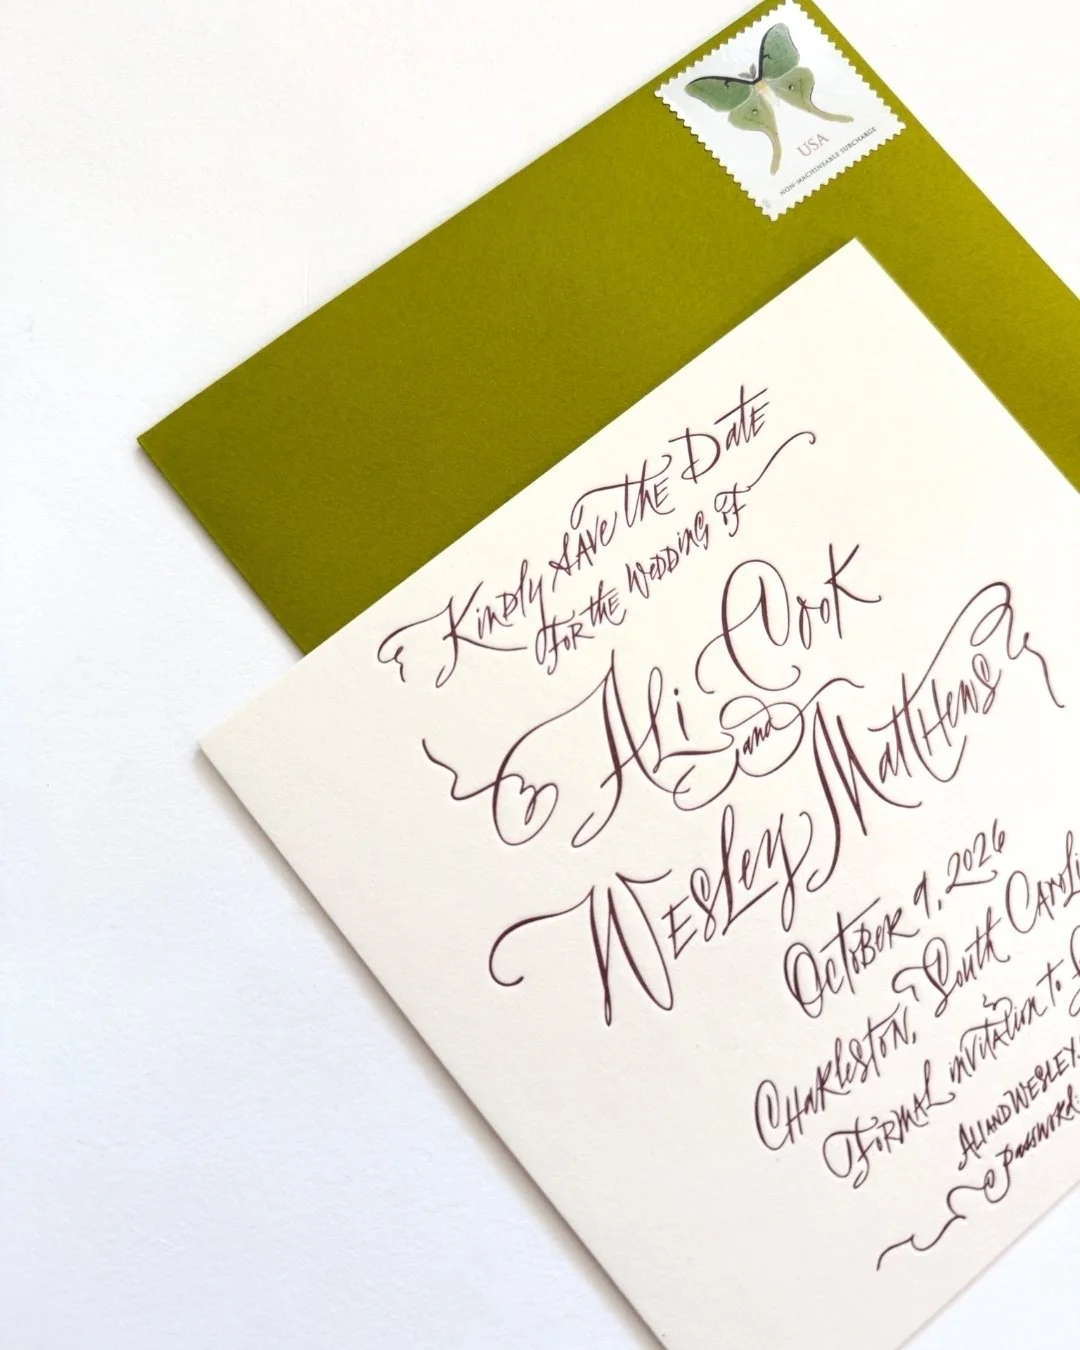 USA
NON-MACHINEABLE SURCHARGE
Kindly save the Date
for the wedding of
Ali Cook
and
Wesley Matthews
October 9, 2026
Charleston, South
Formal invitation to
password: